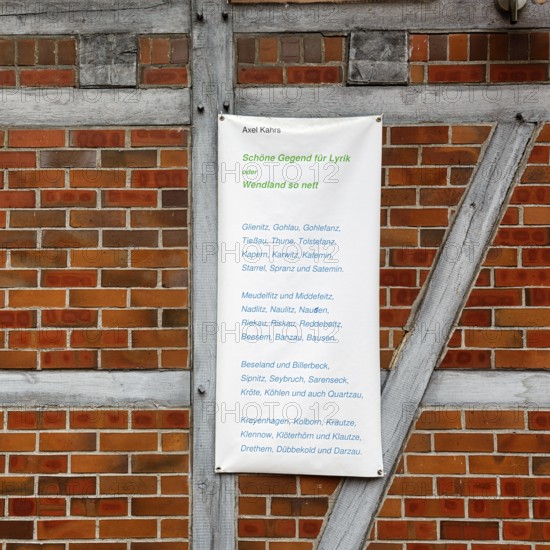 Axel Kahrs
Schöne Gegend für Lyrik
oder
Wendland so nett
Glienitz, Gohlau, Gohlefanz,
Tießau, Thune, Tolstefanz,
Kapern, Karwitz, Katemin,
Starrel, Spranz und Satemin.
Meudelfitz und Middefeitz,
Nadlitz, Naulitz, Nausen,
Riekau, Riskau, Reddebeitz,
Bessem, Banzau, Bausen.
Beseland und Billerbeck,
Sipnitz, Seybruch, Sarenseck,
Kröte, Köhlen und auch Quartzau,
Kreyenhagen, Kolborn, Krautze,
Klennow, Klöterhörn und Klautze,
Drethem, Dübbekold und Darzau.
PHOTO 12